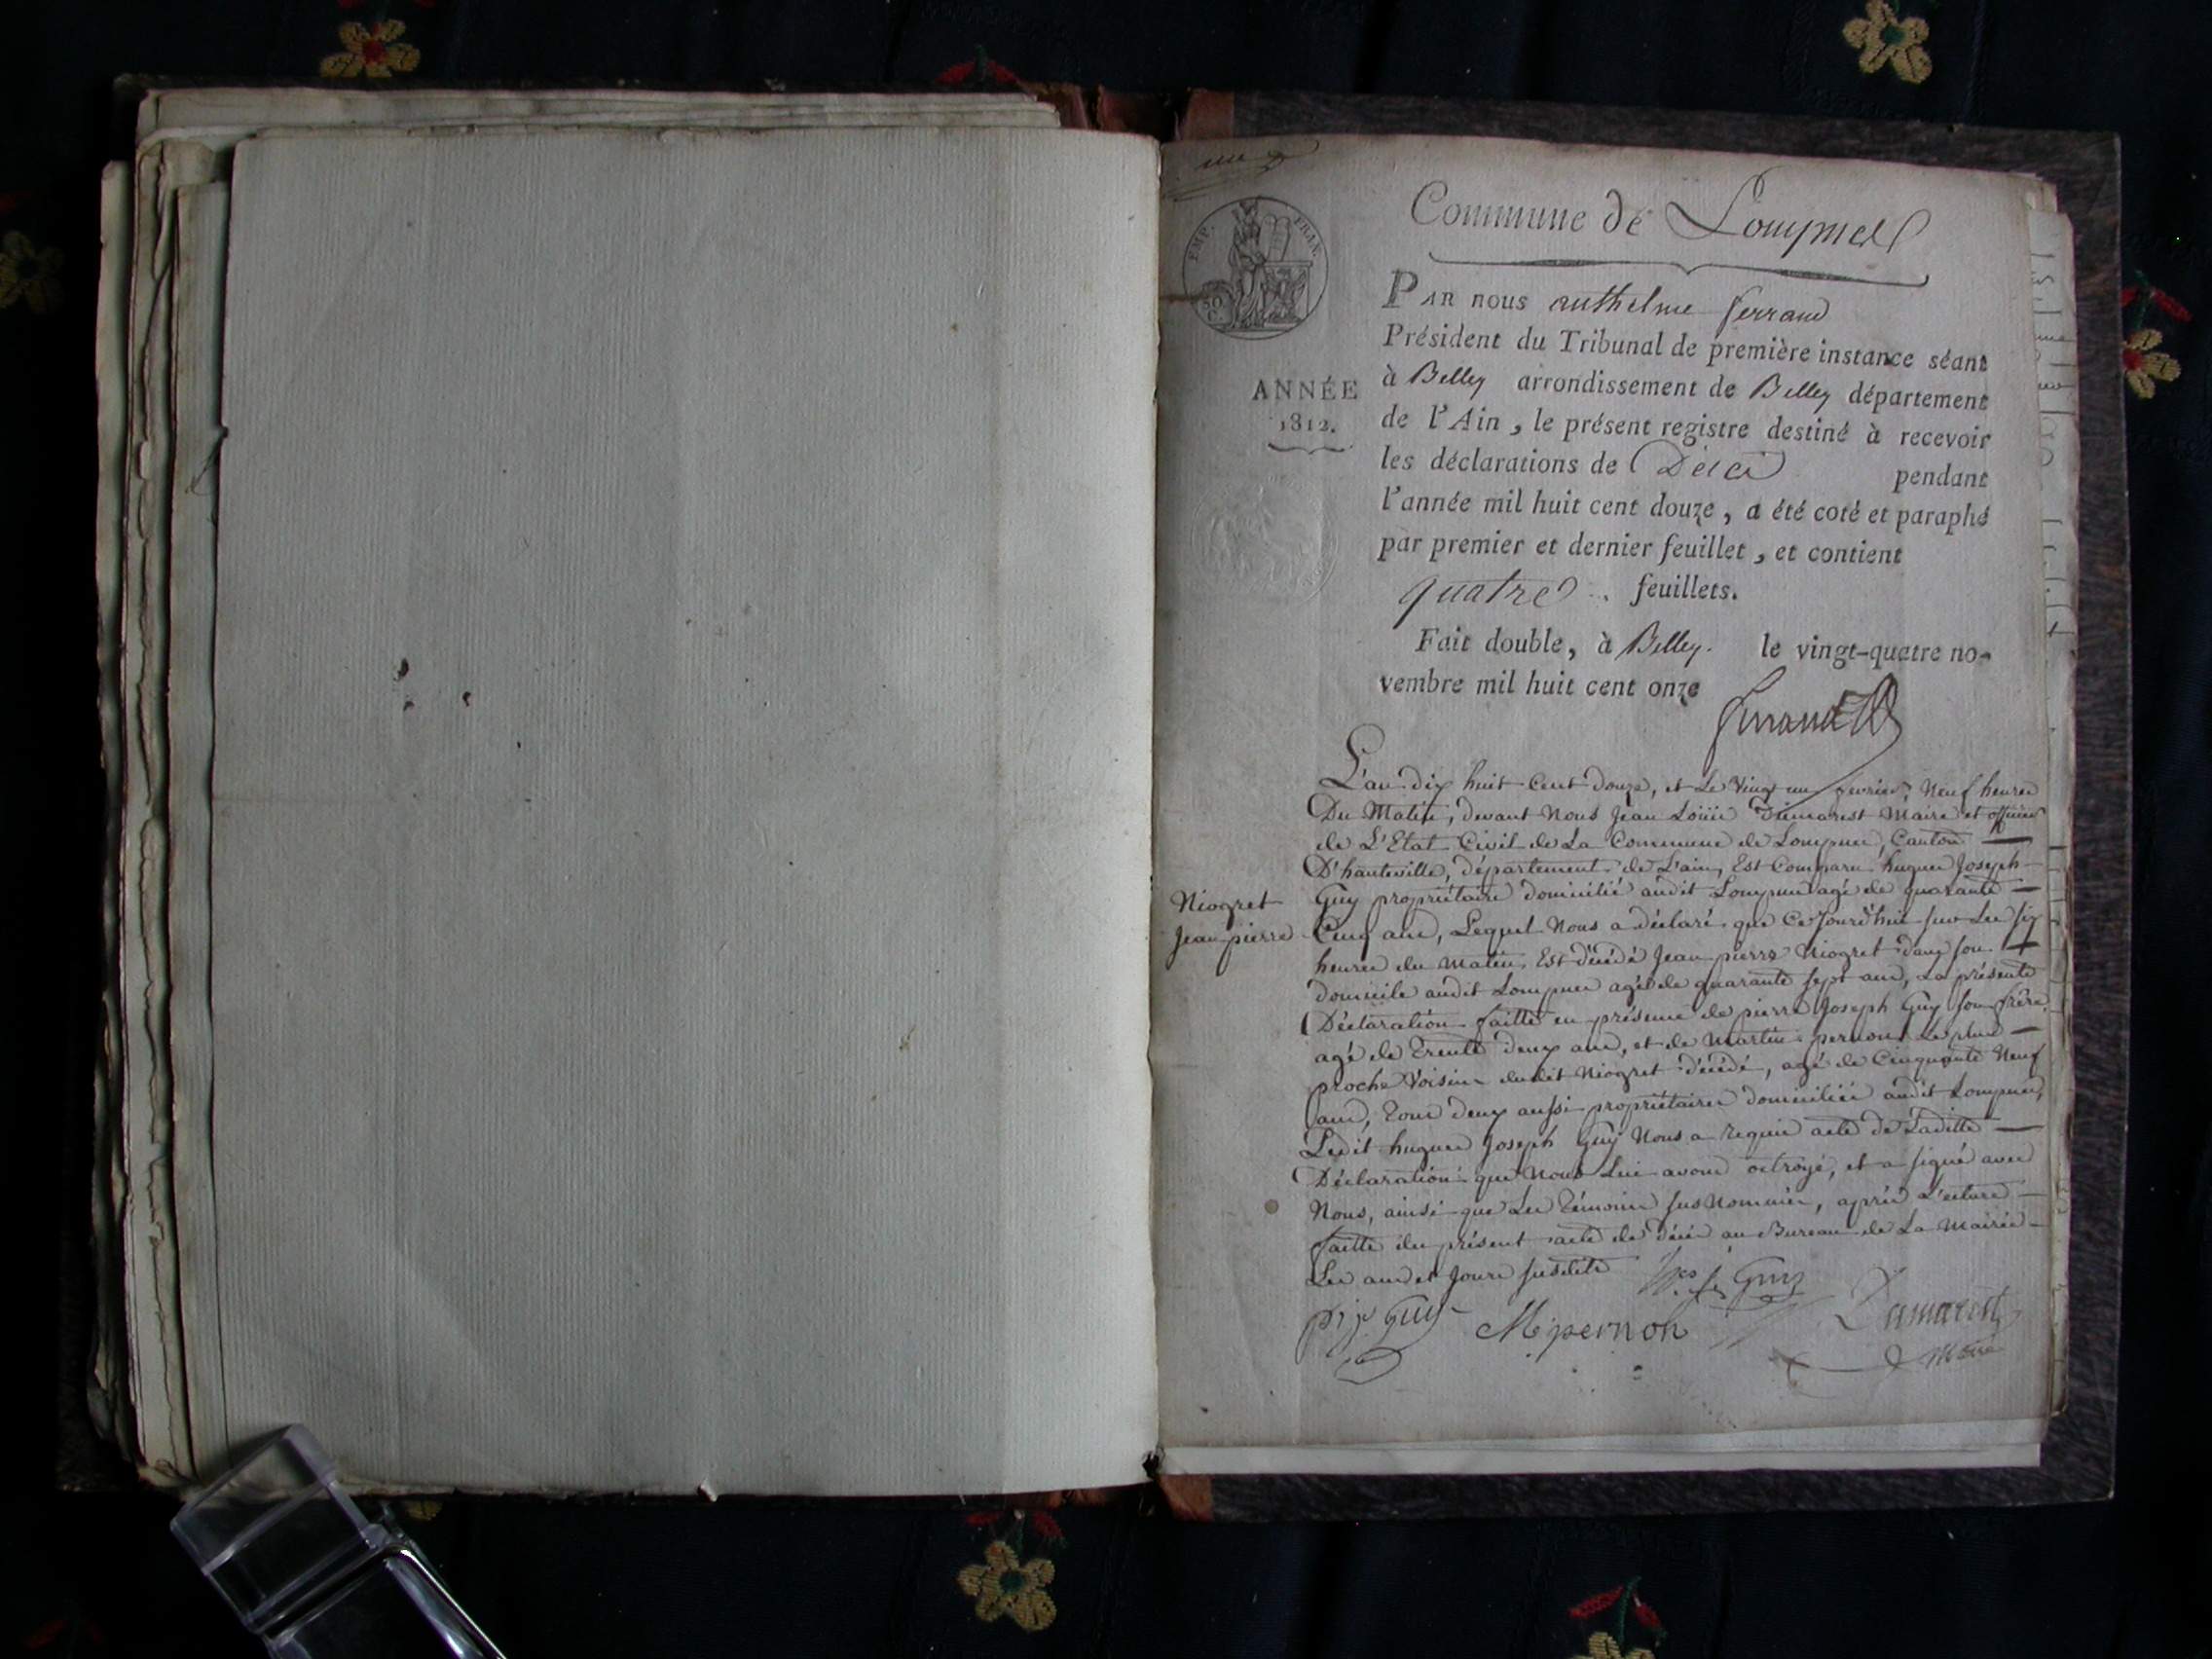 une
EMP. FRAN.
50 C.
Commune de Lompnes
PAR nous anthelme ferrand
Président du Tribunal de première instance séant
à Belley arrondissement de Belley département
ANNÉE
1812.
de l'Ain, le présent registre destiné à recevoir
les déclarations de Décès pendant
l'année mil huit cent douze, a été coté et paraphé
par premier et dernier feuillet, et contient
quatre feuillets.
Fait double, à Belley. le vingt-quatre no-
vembre mil huit cent onze
ferrand
L'an dix huit Cent Douze, et Le Vingt un fevrier, Neuf heures
Du Matin, devant Nous Jean Louis Dumarest Maire et officier
de L'Etat Civil de La Commune de Lompnes, Canton
D'hauteville, département de L'ain, Est Comparu hugues Joseph
Niogret
Jean pierre
Guy propriétaire domicilié audit Lompnes agé de quarante
Cinq ans, Lequel Nous a déclaré que Cejourd'hui sur Les six
heures du matin, Est décédé Jean pierre Niogret dans son
domicile audit Lompnes agé de quarante sept ans, La présente
Déclaration faitte en présence de pierre Joseph Guy son frère
agé de trente deux ans, et de Martin pernon Le plus
proche Voisin dudit Niogret décédé, agé de Cinquante Neuf
ans, tous deux aussi propriétaires domiciliés audit Lompnes,
Ledit hugues Joseph Guy Nous a requis acte de Laditte
Déclaration que Nous Lui avons octroyé, et a signé avec
Nous, ainsi que Les témoins sus Nommés, après L'ecture
faitte du présent acte de décès au Bureau de La Mairie
Les ans et Jours susdits
h. js Guy
pr js Guy M. pernon Dumarest
Maire